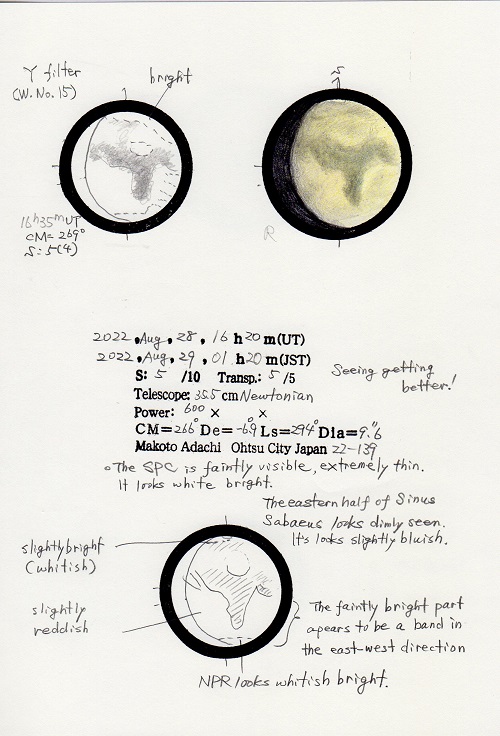 Y filter
(W. No. 15)
bright
S
16h35mUT
CM=269°
S: 5(4)
R
2022, Aug, 28, 16 h 20 m (UT)
2022, Aug, 29, 01 h 20 m (JST)
S: 5 /10 Transp.: 5 /5
Telescope: 35.5 cm Newtonian
Power: 600 × ×
CM=266° De=-6.9° Ls=294° Dia=9."6
Makoto Adachi Ohtsu City Japan 22-139
Seeing getting
better!
The SPC is faintly visible, extremely thin.
It looks white bright.
The eastern half of Sinus
Sabaeus looks dimly seen.
It's looks slightly bluish.
slightly bright
(whitish)
slightly
reddish
The faintly bright part
apears to be a band in
the east-west direction
NPR looks whitish bright.